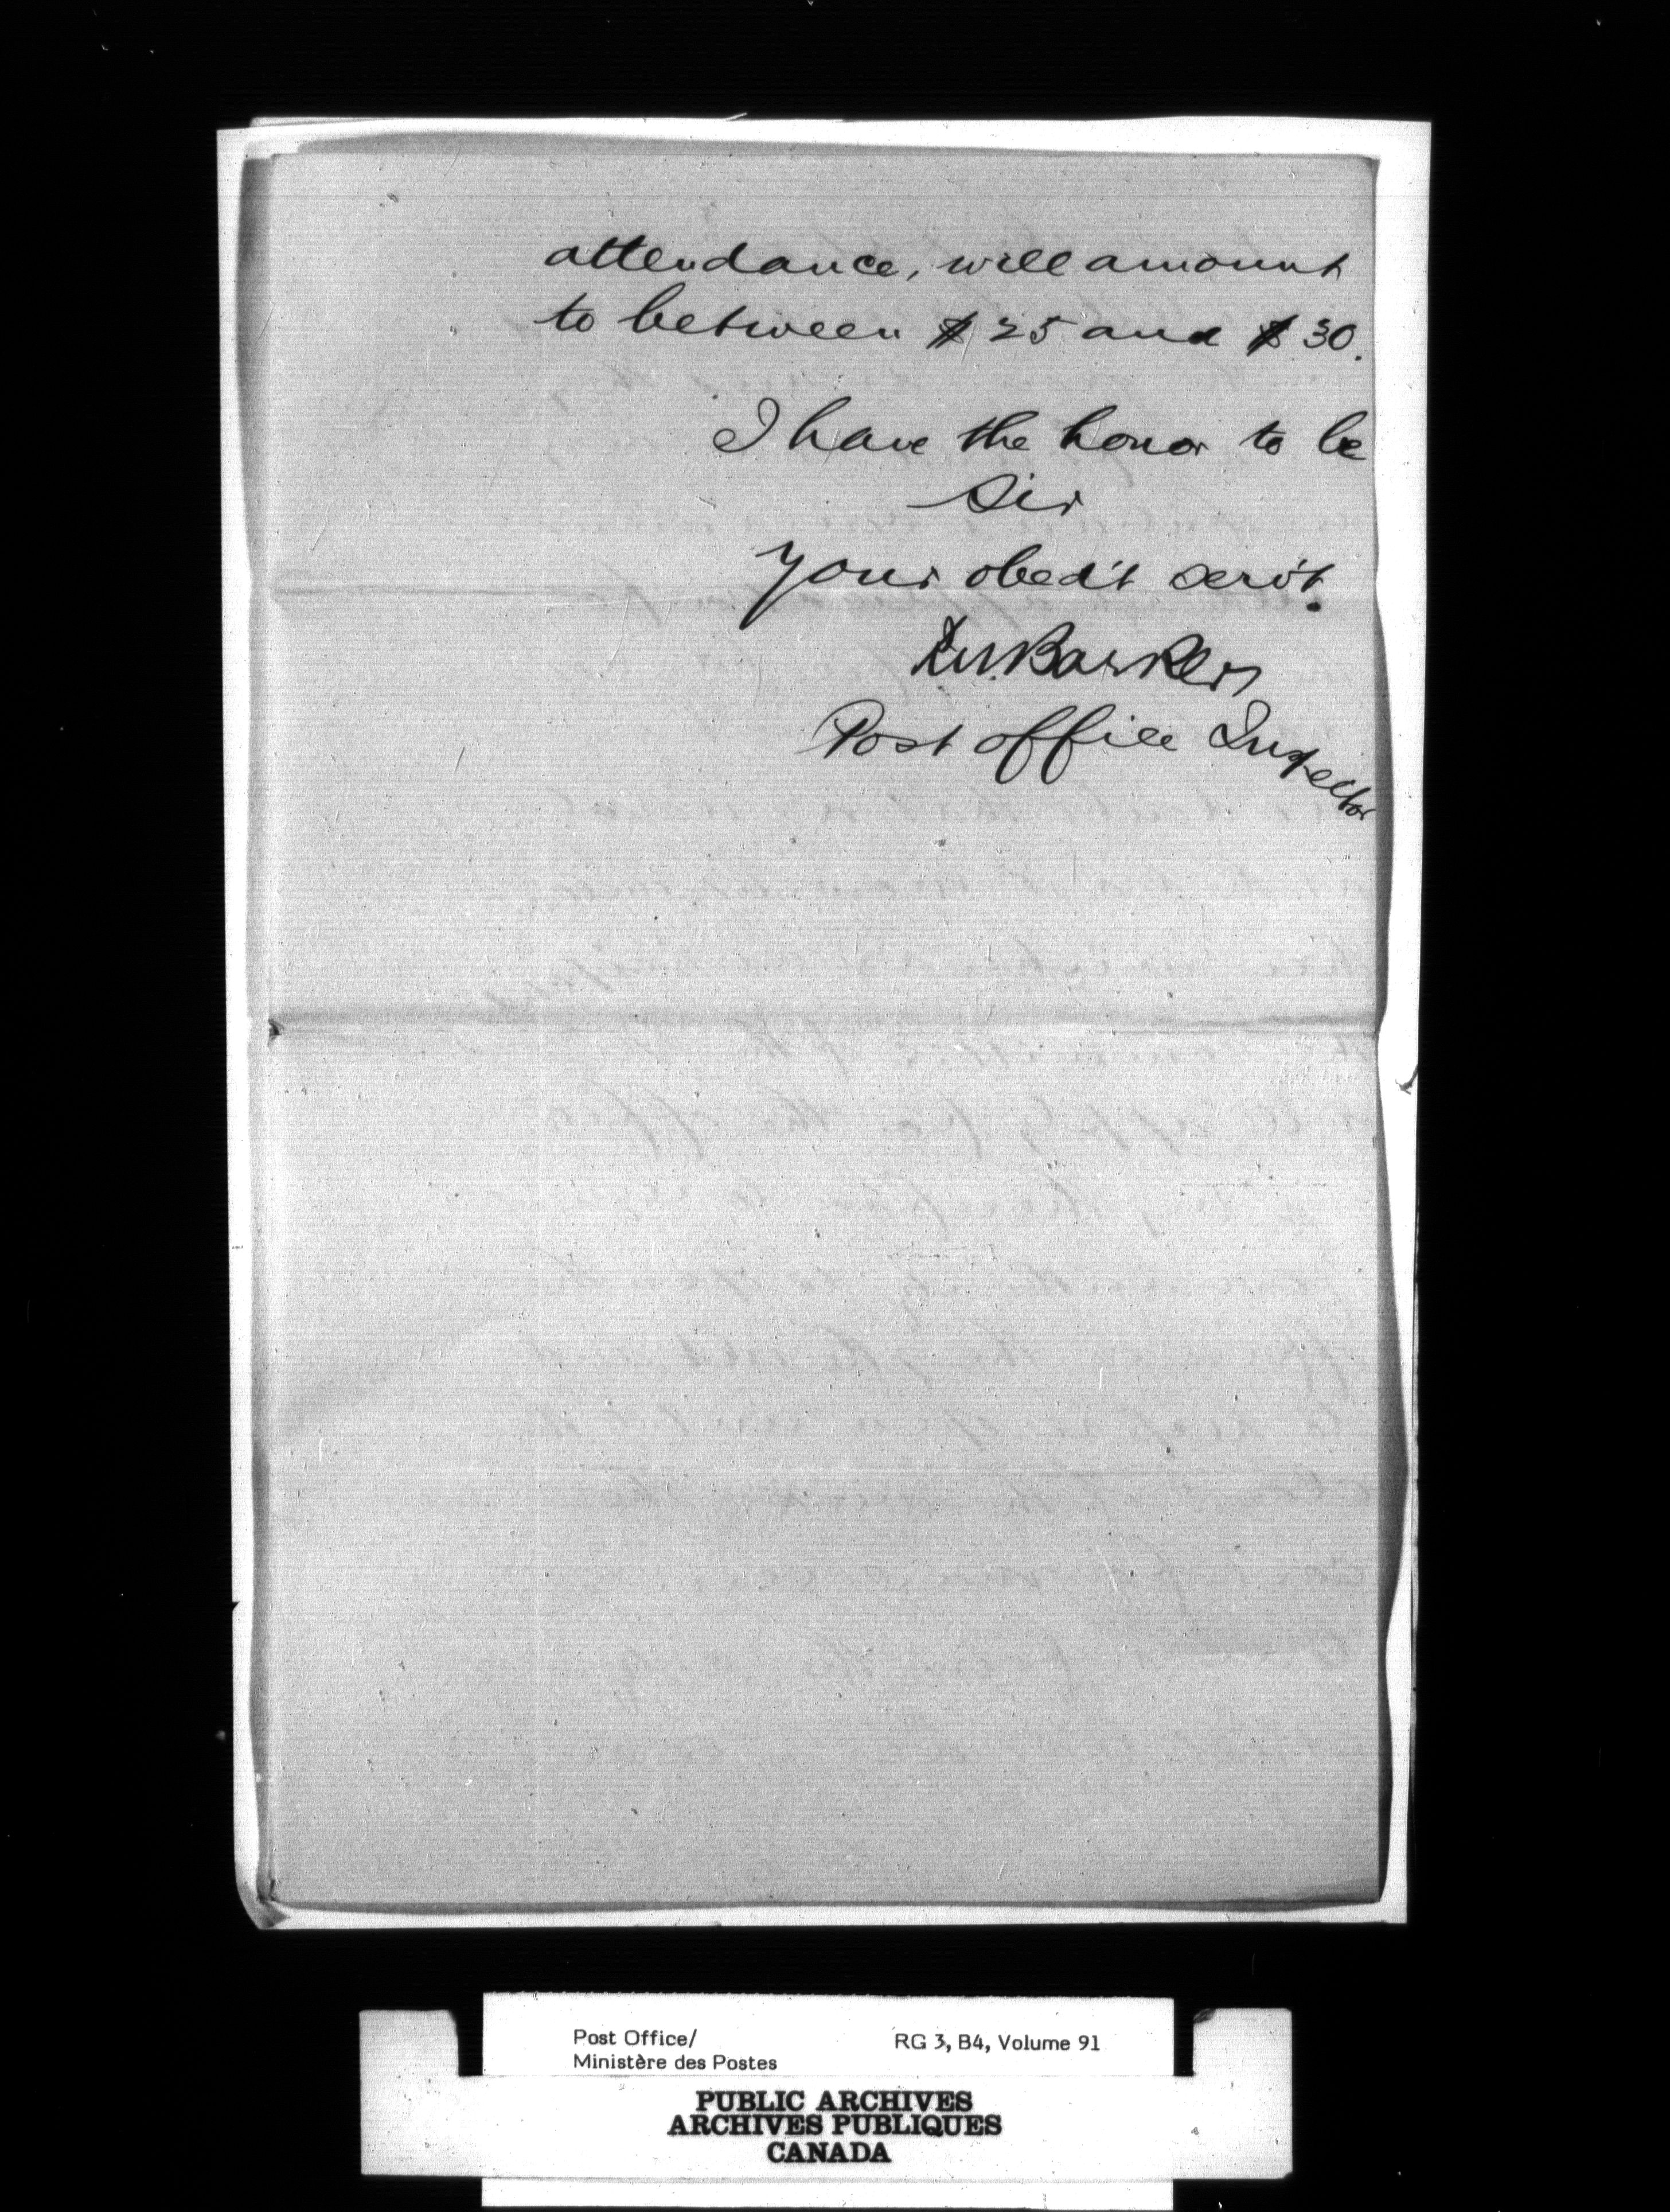 attendance, will amount
to between $25 and $30.
I have the honor to be
Sir
Your obed't serv't.
Barker
Post office Inspector
Post Office/
Ministère des Postes
RG 3, B4, Volume 91
PUBLIC ARCHIVES
ARCHIVES PUBLIQUES
CANADA